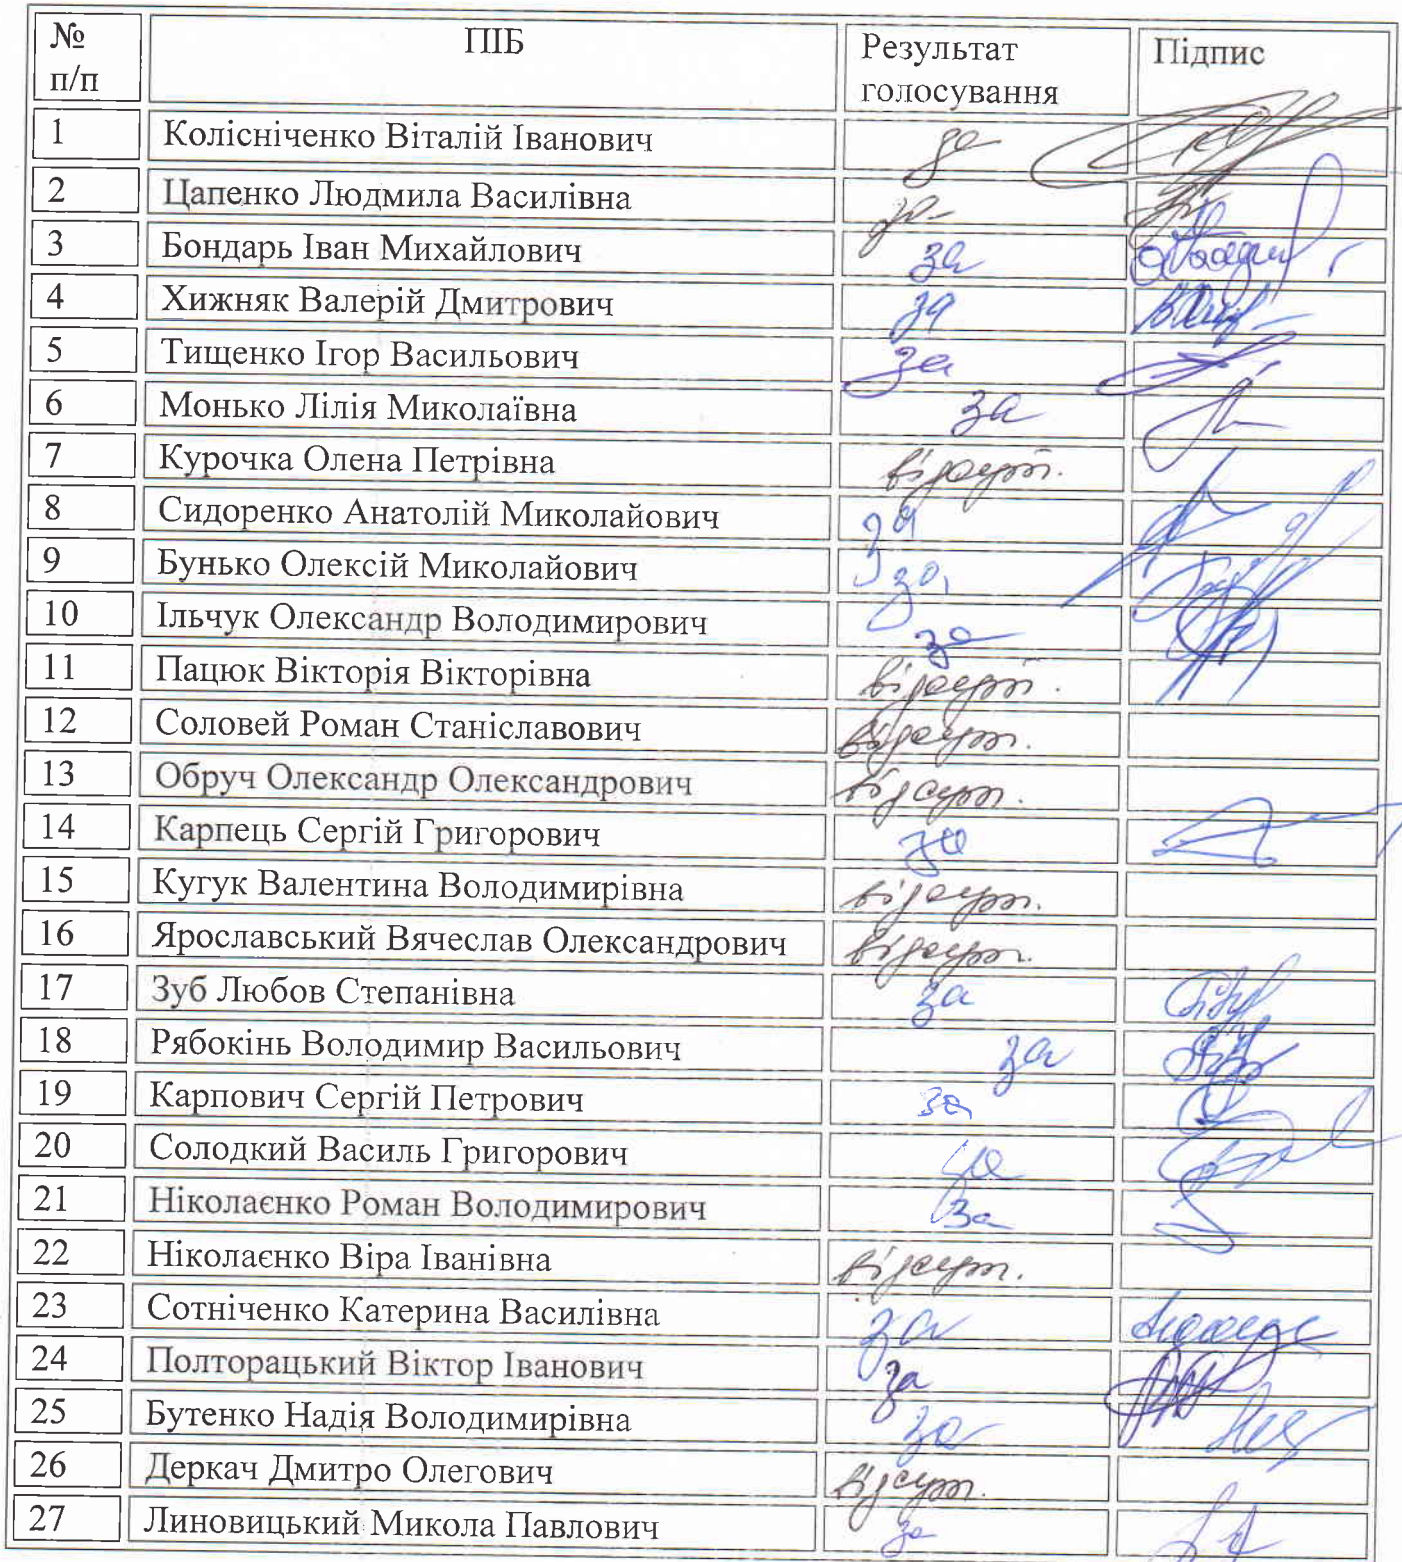 № п/п ПІБ Результат голосування Підпис
1 Колісніченко Віталій Іванович за
2 Цапенко Людмила Василівна за
3 Бондарь Іван Михайлович за
4 Хижняк Валерій Дмитрович за
5 Тищенко Ігор Васильович за
6 Монько Лілія Миколаївна за
7 Курочка Олена Петрівна відсутн.
8 Сидоренко Анатолій Миколайович за
9 Бунько Олексій Миколайович за
10 Ільчук Олександр Володимирович за
11 Пацюк Вікторія Вікторівна відсутн.
12 Соловей Роман Станіславович відсутн.
13 Обруч Олександр Олександрович відсутн.
14 Карпець Сергій Григорович за
15 Кугук Валентина Володимирівна відсутн.
16 Ярославський Вячеслав Олександрович відсутн.
17 Зуб Любов Степанівна за
18 Рябокінь Володимир Васильович за
19 Карпович Сергій Петрович за
20 Солодкий Василь Григорович за
21 Ніколаєнко Роман Володимирович за
22 Ніколаєнко Віра Іванівна відсутн.
23 Сотніченко Катерина Василівна за
24 Полторацький Віктор Іванович за
25 Бутенко Надія Володимирівна за
26 Деркач Дмитро Олегович відсутн.
27 Линовицький Микола Павлович за